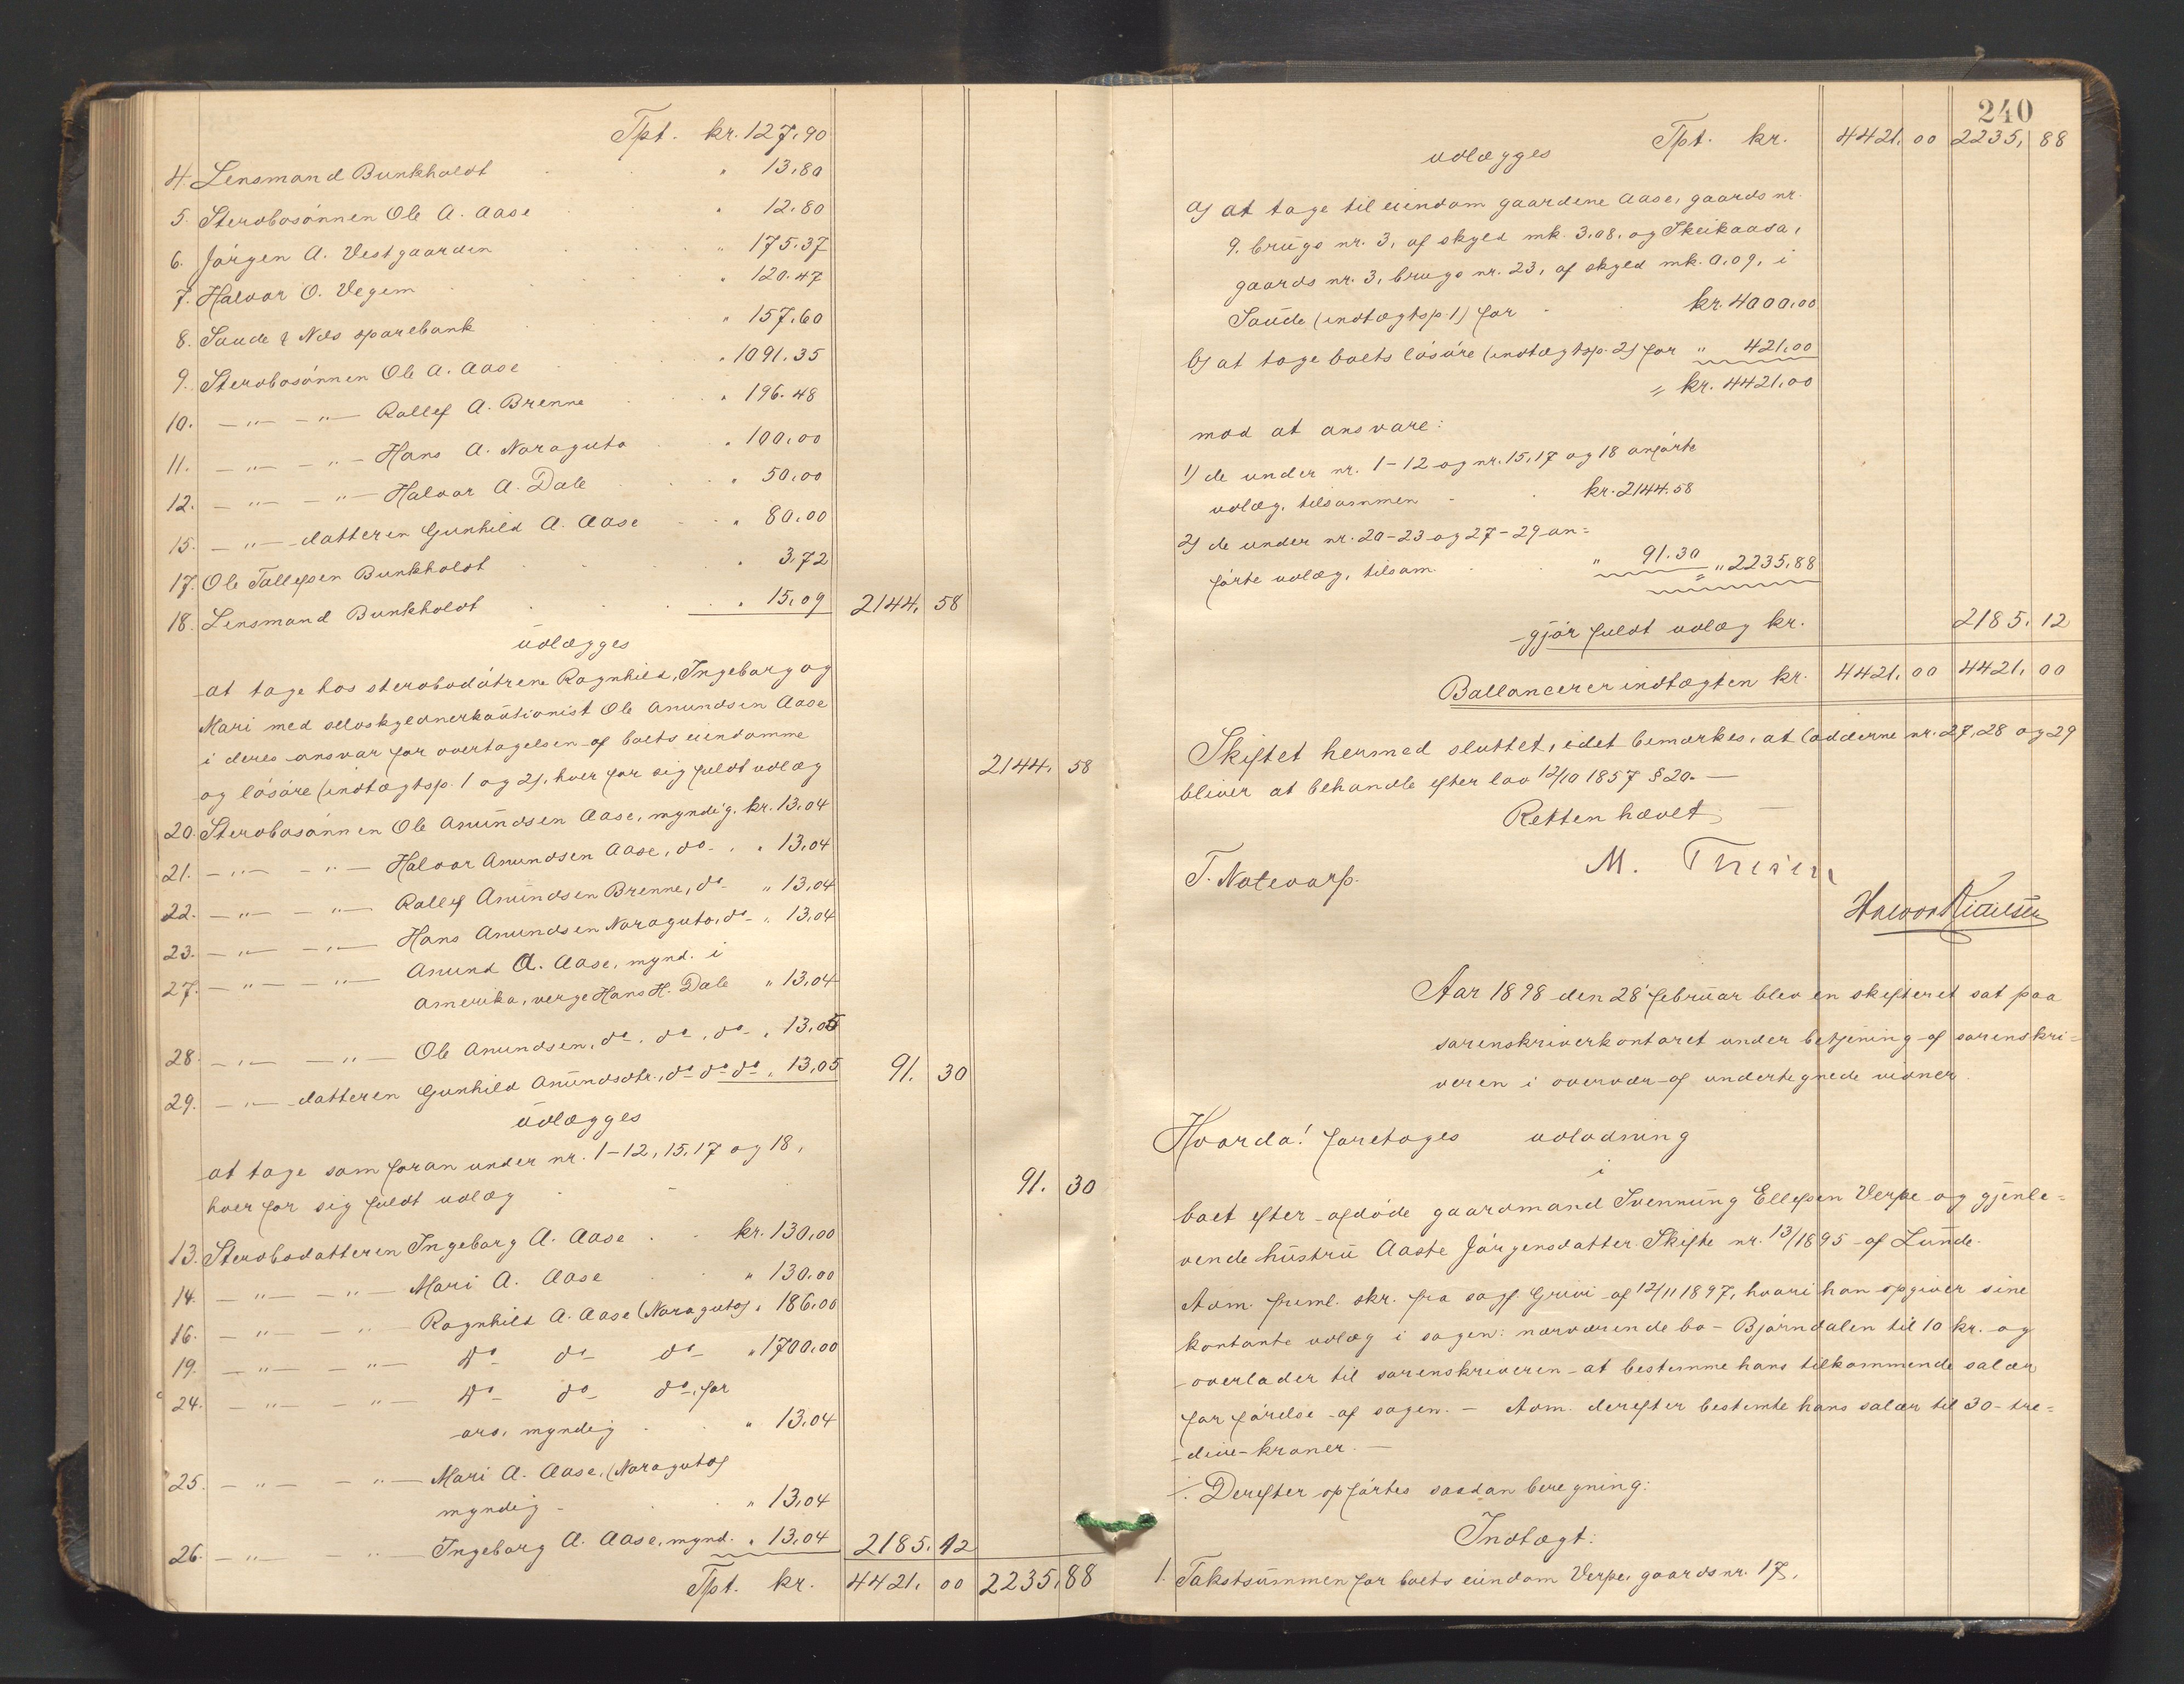 Tpt. kr. 127,90
4. Lensmand Bunkholdt " 13,80
5. Stervbosönnen Ole A. Aase " 12,80
6. Jörgen A. Vestgaarden " 175,37
7. Halvor O. Vegem " 120,47
8. Saude & Nes sparebank " 157,60
9. Stervbosönnen Ole A. Aase " 1091,35
10. —"— —"— Rollef A. Brenne " 196,48
11. —"— —"— Hans A. Noraguta " 100,00
12. —"— —"— Halvor A. Dale " 50,00
15. —"— datteren Gunhild A. Aase " 80,00
17. Ole Tollefsen Bunkholdt " 3,72
18. Lensmand Bunkholdt " 15,09 2144, 58
udlægges
at tage hos stervbodötrene Ragnhild, Ingeborg og
Mari med selvskyldnerkautionist Ole Anundsen Aase
i deres ansvar for overtagelsen af boets eiendomme
og lösöre (indtægtsp. 1 og 2), hver for sig fuldt udlæg 2144, 58
20. Stervbosönnen Ole Anundsen Aase, myndig, kr. 13,04
21. —"— —"— Halvor Anundsen Aase, do " 13,04
22. —"— —"— Rollef Anundsen Brenne, do " 13,04
23. —"— —"— Hans Anundsen Noraguta, do " 13,04
27. —"— —"— Anund A. Aase, mynd. i
Amerika, verge Hans H. Dale " 13,04
28. —"— —"— Ole Anundsen, do, do, do " 13,05
29. —"— datteren Gunhild Anundsdtr., do do do " 13,05 91, 30
Udlægges
at tage som foran under nr. 1-12, 15, 17 og 18,
hver for sig fuldt udlæg 91. 30
13. Stervbodatteren Ingeborg A. Aase kr. 130,00
14. —"— —"— Mari A. Aase " 130,00
16. —"— —"— Ragnhild A. Aase (Noraguta) " 186,00
19. —"— —"— do do do " 1700,00
24. —"— —"— do do do, for
arv, myndig " 13,04
25. —"— —"— Mari A. Aase, (Noraguta)
myndig " 13,04
26. —"— —"— Ingeborg A. Aase, mynd. " 13,04 2185, 12
Tpt. kr. 4421, 00 2235, 88
240
Tpt. kr. 4421, 00 2235, 88
udlægges
a) at tage til eiendom gaardene Aase, gaards nr.
9, brugs nr. 3, af skyld mk. 3,08, og Skeikaasa,
gaards nr. 3, brugs nr. 23, af skyld mk. 0,09, i
Saude (indtægtsp. 1) for kr. 4000,00
b) at tage boets lösöre (indtægtsp. 2) for " 421,00
= kr. 4421,00
mod at ansvare:
1) de under nr. 1-12 og nr. 15, 17 og 18 anförte
udlæg, tilsammen kr. 2144,58
2) de under nr. 20-23 og 27-29 an=
förte udlæg, tilsam. " 91,30 = " 2235,88
gjör fuldt udlæg kr. 2185, 12
Ballancerer indtægten kr. 4421, 00 4421, 00
Skiftet hermed sluttet, idet bemærkes, at lodderne nr. 27, 28 og 29
bliver at behandle efter lov 12/10 1857 § 20. —
Retten hævet
T. Notevarp. M.
Aar 1898 den 28' februar blev en skifteret sat paa
sorenskriverkontoret under betjening af sorenskri=
veren i overvær af undertegnede vidner.
Hvorda! foretoges udlodning
i
boet efter afdöde gaardmand Svennung Ellefsen Verpe og gjenle=
vende hustru Aaste Jörgensdatter. Skifte nr. 13/1895 af Lunde.
Adm. freml. skr. fra sagf. Grivi af 12/11 1897, hvori han opgiver sine
kontante udlæg i sagen: nærværende bo - Björndalen til 10 kr. og
overlader til sorenskriveren at bestemme hans tilkommende salær
for förelse af sagen. — Adm. derefter bestemte hans salær til 30 - tre=
dive - kroner. —
∴ Derefter opförtes saadan beregning:
Indtægt:
1. Takstsummen for boets eiendom Verpe, gaards nr. 17,